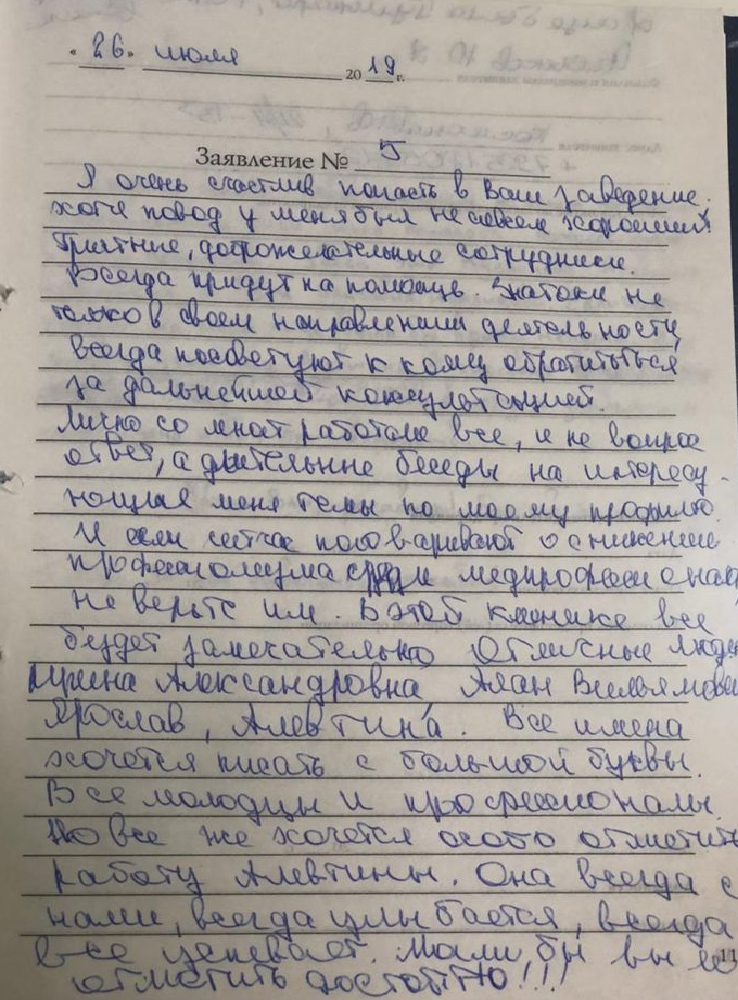 « 26 » июля 2019 г.
Заявление № 5
Я очень счастлив попасть в Ваш заведение,
хотя повод у меня был не совсем хороший.
Приятные, доброжелательные сотрудники.
Всегда придут на помощь. Знатоки не
только в своем направлении деятельности,
всегда посоветуют к кому обратиться
за дальнейшей консультацией.
Лично со мной работали все, и не вопрос
ответ, а длительные беседы на интересу-
ющие меня темы по моему профилю.
И если сейчас поговаривают о снижении
профессионализма среди медпрофессионал
не верьте им. В этой клинике все
будет замечательно Отличные люди
Ирина Александровна, Алан Вильямович
Ярослав, Алевтина. Все имена
хочется писать с большой буквы.
Все молодцы и профессионалы.
Но все же хочется особо отметить
работу Алевтины. Она всегда с
нами, всегда улыбается, всегда
все успевает. Могли бы вы её
отметить достойно!!!
11